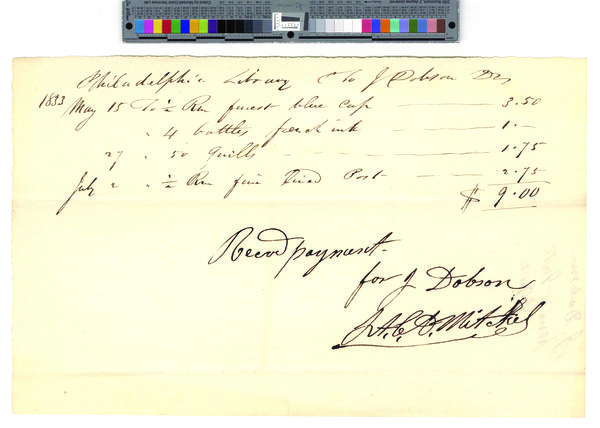 Philadelphia Library To J Dobson Dr
1833
May 15 To ½ Rm finest blue cap 3.50
" 4 bottles french ink 1.—
27 " 50 Quills 1.75
July 2 " ½ Rm fine Lined Post 2.75
$ 9.00
Recvd payment
for J Dobson
A. C. D. Mitchel